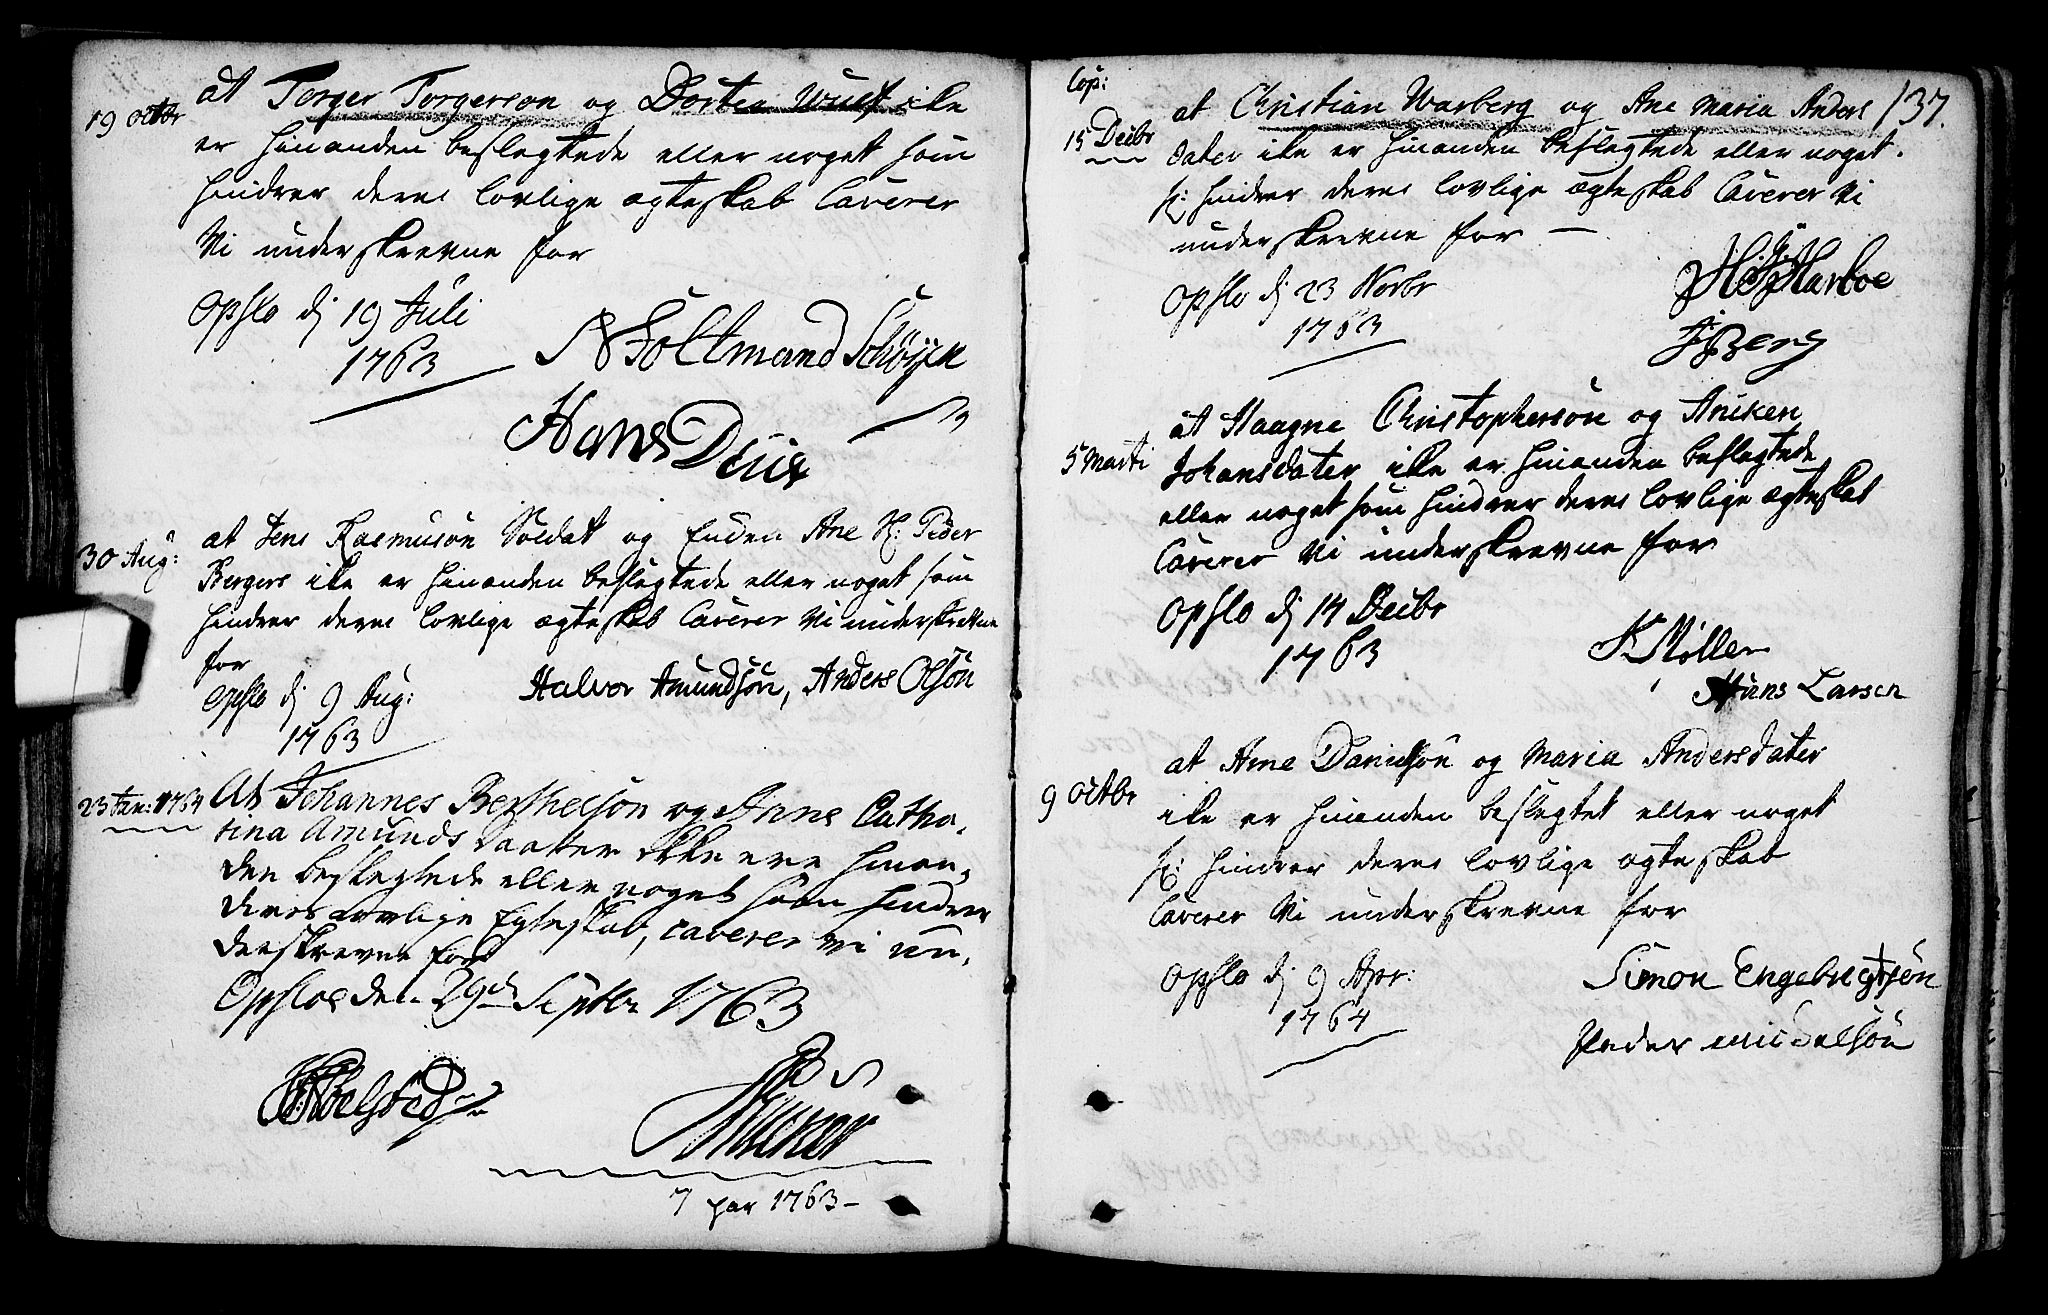 19 octbr
at Torger Torgerson og Dortea Wulf ike
er hinanden beslegtede eller noget som
hindrer deres lovlige ægteskab Caverer
Vi underskrevne for
Opslo dj 19 Juli
1763
Holtmand Schøyen
Hans Duus
30 Aug:
at Jens Rasmusøn Soldat og Enken Ane Sl: Peder
Bergers ike er hinanden beslegtede eller noget som
hindrer deres lovlige ægteskab Caverer Vi underskrevne
for
Opslo dj 9 Aug:
1763
Halvor Amundsøn, Anders Olsøn
23 Jan: 1764
At Johannes Berthelsøn og Anne Catha-
rina Amunds Daatter Ikke ere hinan-
den beslegtede eller noget som hindrer
deres lovlige Egteskab, caverer vi un-
derskrevne for
Opsloe den 29de Septbr 1763
7 par 1763 -
137.
Cop:
15 Decbr
at Christian Warberg og Ane Maria Anders
dater ike er hinanden beslegtede eller noget
s: hindrer deres lovlige ægteskab Caverer Vi
underskrevne for —
Opslo dj 23 Novbr
1763
Harboe
JBerg
5 Marti
at Haagne Christophersøn og Aniken
Johansdater ike er hinanden beslegtede
eller noget som hindrer deres lovlige ægteskab
Caverer Vi underskrevne for
Opslo dj 14 Decbr
1763
Møller
Hans Larsen
9 octbr
at Arne Danielsøn og Maria Andersdater
ike er hinanden beslegtet eller noget
s: hindrer deres lovlige ægteskab
Caverer Vi underskrevne for
Opslo dj 9 Apr:
1764
Simon Engebregtsøn
Peder Mickelsøn